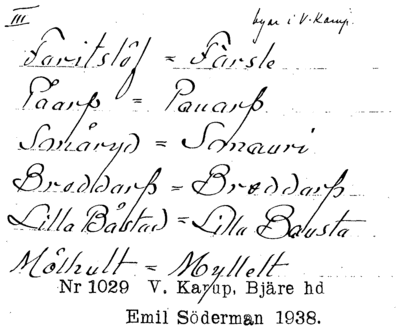 III
byar i V. Karup.
Faritslöf = Färsle
Påarp = Pauarp
Småryd = Smauri
Broddarp = Broddarp
Lilla Båstad = Lilla Bausta
Mölhult = Myllelt
Nr 1029 V. Karup, Bjäre hd
Emil Söderman 1938.